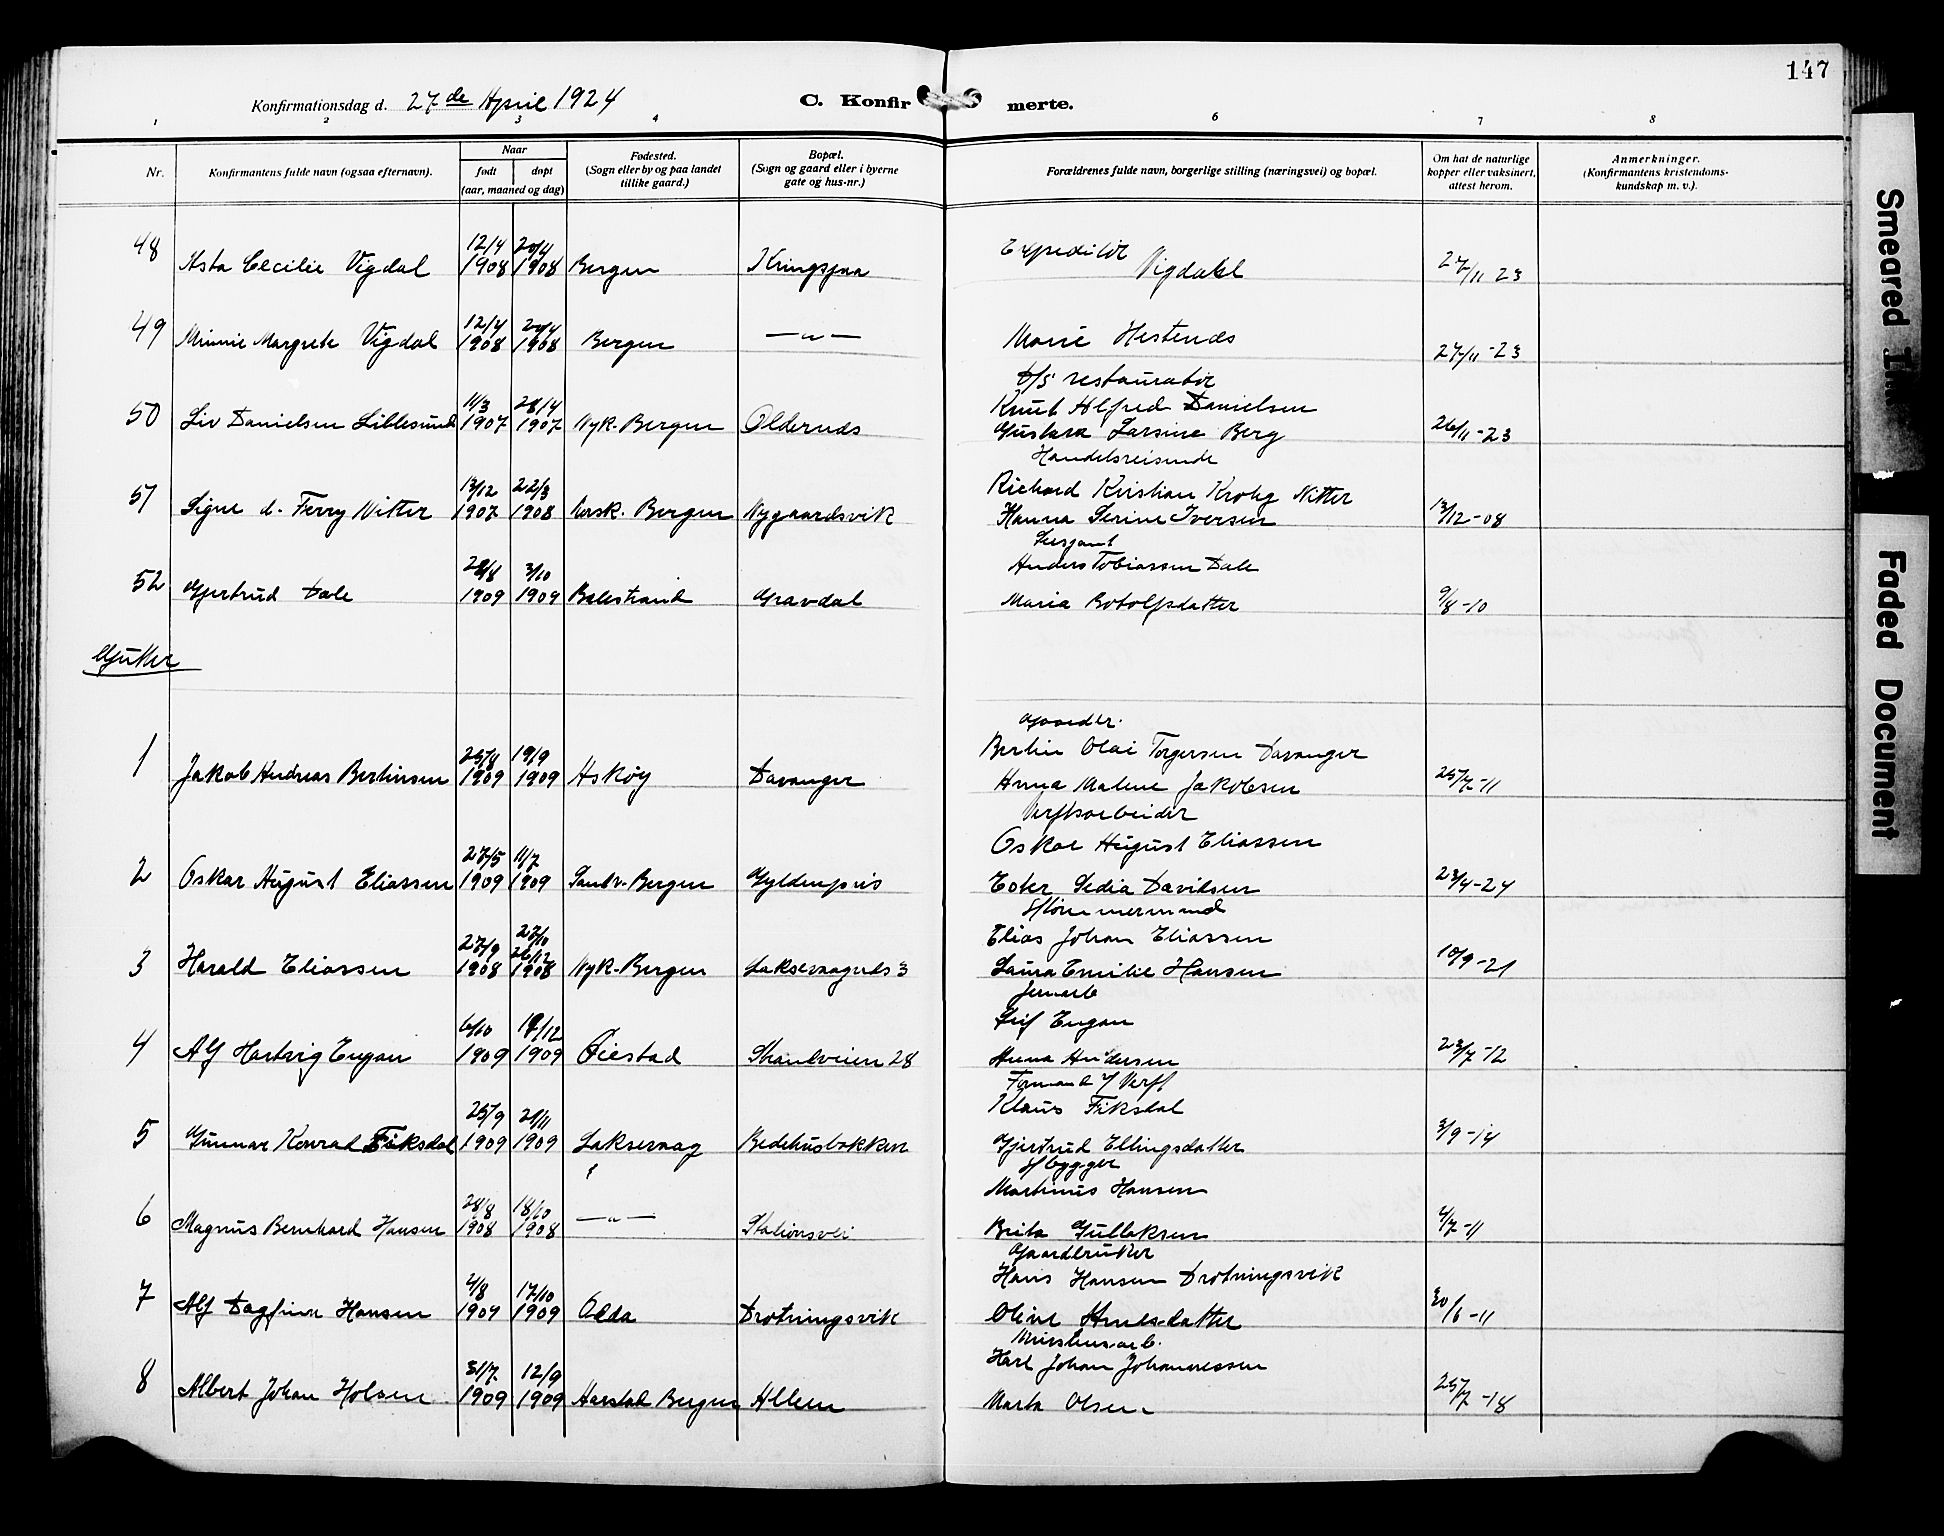 147
Konfirmationsdag d. 27de April 1924 C. Konfir merte.
1 2 3 4 5 6 7 8
Nr.
Konfirmantens fulde navn (ogsaa efternavn).
Naar
født døpt
(aar, maaned og dag)
Fødested.
(Sogn eller by og paa landet
tillike gaard.)
Bopæl.
(Sogn og gaard eller i byerne
gate og hus-nr.)
Forældrenes fulde navn, borgerlige stilling (næringsvei) og bopæl.
Om hat de naturlige
kopper eller vaksinert,
attest herom.
Anmerkninger.
(Konfirmantens kristendoms-
kundskap m. v.).
12/4 20/4 Expeditør
48 Asta Cecilie Vigdal 1908 1908 Bergen Kringsjaa Vigdahl 27/11 23
12/4 20/4
49 Minnie Margrete Vigdal 1908 1908 Bergen — " — Marie Hestenæs 27/11-23
D/S restauratør
11/3 28/4 Knut Alfred Danielsen
50 Liv Danielsen Lillesund 1907 1907 Nyk. Bergen Oldernæs Gustava Larsine Berg 26/11-23
Handelsreisende
13/12 22/3 Richard Kristian Krohg Nitter
51 Signe d. Ferry Nitter 1907 1908 Korsk. Bergen Nygaardsvik Hanna Serine Iversen 13/12-08
Sersjant
28/8 3/10 Anders Tobiassen Dale
52 Gjertrud Dale 1909 1909 Balestrand Gravdal Maria Botolfsdatter 9/8-10
Gutter
Gaardbr.
25/8 19/9 Bertin Olai Torgersen Davanger
1 Jakob Andreas Bertinsen 1909 1909 Askøy Davanger Anna Malene Jakobsen 25/7-11
Verftsarbeider
27/5 11/7 Oskar August Eliassen
2 Oskar August Eliassen 1909 1909 Sandv. Bergen Gyldenpris Ester Sedia Davidsen 23/4-24
Støm mermand
27/10
27/9 26/12 Elias Johan Eliassen
3 Harald Eliassen 1908 1908 Nyk. Bergen Laksevaagnes 3 Laura Emilie Hansen 10/9-21
Jernarb
6/10 19/12 Leif Engan
4 Alf Hartvig Engan 1909 1909 Øiestad Strandveien 28 Anna Andersen 23/7-12
Formand v/ Verft
25/9 21/11 Klaus Fiksdal
5 Gunnar Konrad Fiksdal 1909 1909 Laksevaag Bedehusbakken Gjertrud Ellingsdatter 3/9-14
Sbygger
28/8 18/10 Martinus Hansen
6 Magnus Bernhard Hansen 1908 1908 — " — Stationsvei Brita Gullaksen 4/7-11
Gaardbruker
2/8 17/10 Hans Hansen Drotningsvik
7 Alf Dagfinn Hansen 1909 1909 Olda Drotningsvik Oline Arnesdatter 30/6-11
31/7 12/9 Karl Johan Johannessen
8 Albert Johan Holsen 1909 1909 Harstad Bergen Alleen Marta Olsen 25/7-18
Smeared
Faded Document